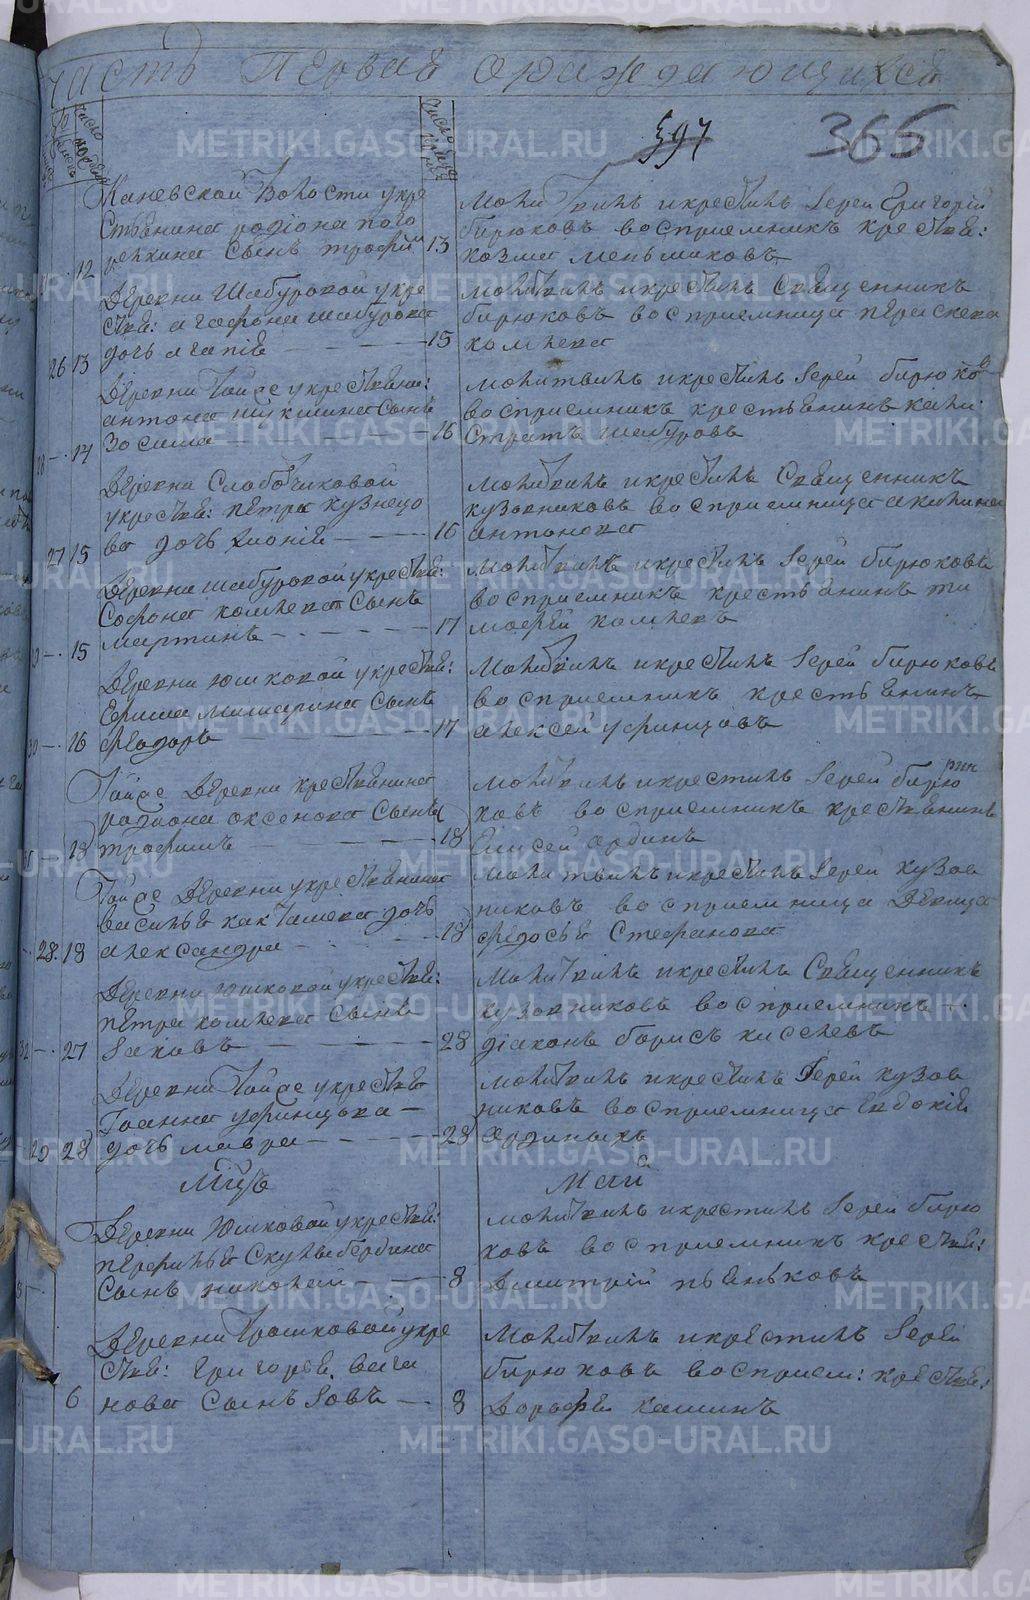 Часть Первая ораждающихся
597 365
Каневской Волости укре
стьянина родiона пого
релкина Сынъ трофим
12 13
Молитвилъ икрестилъ Iерей Григорiй
бирюковъ восприемникъ крестья:
козма меньшиковъ
Деревни Шабуровой укре
стья: агафона шабурова
дочь агапiя
26 13 15
Молитвилъ икрестилъ Священникъ
бирюковъ восприемница параскева
комлева
антона шикшина сынъ
Зосима
14 16
молитвилъ икрестилъ Iерей бирюков
восприемникъ крестьянинъ кали
стратъ шабуровъ
Деревни Слободчиковой
укрестья: петра кузнецо
ва дочь
27 15 16
Молитвилъ икрестилъ Священникъ
кузовниковъ восприемница акилина
антонова
Деревни шабуровой укрестья:
Софона комлева Сынъ
мартинъ
15 17
Молитвилъ икрестилъ Iерей бирюковъ
восприемникъ крестьянинъ ти
мофей комлевъ
Деревни юшковой укрестья:
Сынъ
феодоръ
30 16 17
Молитвилъ икрестилъ Iерей бирюковъ
восприемникъ крестьянинъ
алексей уфинцовъ
деревни крестьянина
радiона оксенова Сынъ
трофимъ
18 18
молитвилъ икрестилъ Iерей бирю
ковъ восприемникъ крестьянинъ
Елисей ординъ
деревни укрестьянина
василья дочь
александра
28 18 18
Молитвилъ икрестилъ Iерей кузов
никовъ восприемница Девица
федосья Стефанова
Деревни Юшковой укрестья:
петра комлева Сынъ
Iаковъ
27 28
Молитвилъ икрестилъ Священникъ
кузовниковъ восприемникъ
дiаконъ борисъ киселевъ
Деревни укрестья
Iоанна уфинцова
дочь мавра
29 28 28
молитвилъ икрестилъ Iерей кузов
никовъ восприемница Евдокiя
Ординыхъ
Мцъ Маiй
Деревни Юшковой укрестья:
перфилья Скулыбердина
Сынъ николай
8
молитвилъ икрестилъ Iерей бирю
ковъ восприемникъ крестья:
Димитрiй пьянковъ
Деревни укре
стья: григорья вага
нова Сынъ Iовъ
6 8
Молитвилъ икрестилъ Iерей
бирюковъ восприем: крестья:
Дорофей кашинъ
METRIKI.GASO-URAL.RU